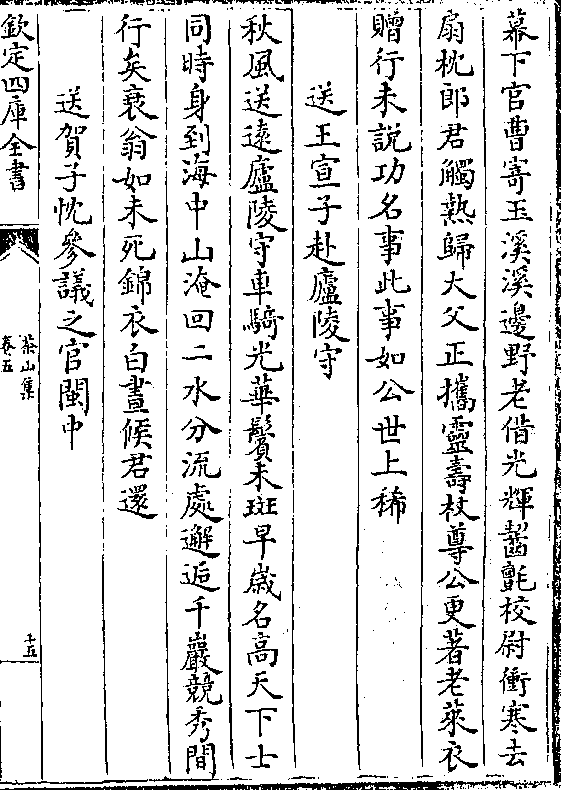 幕下官曹寄玉溪溪邊野老借光輝齧氈校尉衝寒去
扇枕郎君觸熱歸大父正攜靈壽杖尊公更著老萊衣
贈行未說功名事此事如公世上稀
送王宣子赴廬陵守
秋風送遠廬陵守車騎光華鬢未斑早歲名高天下士
同時身到海中山淹回二水分流處邂逅千巖競秀間
行矣衰翁如未死錦衣白晝候君還
送賀子忱參議之官閩中
欽定四庫全書
茶山集
卷五
十五